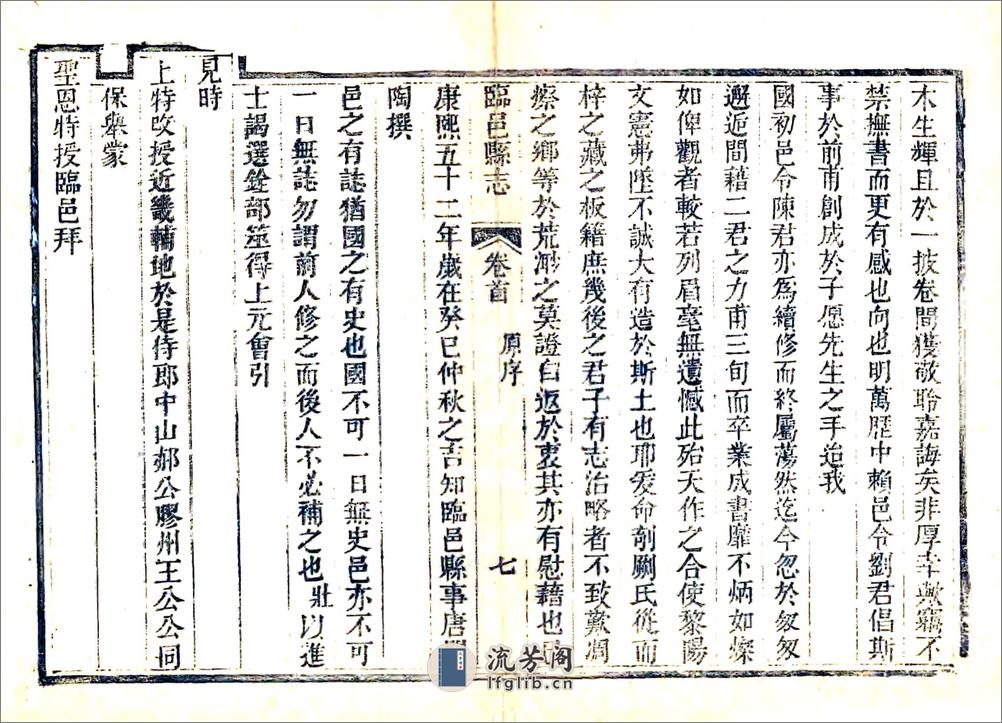 木生輝且於一披卷間獲敬聆嘉誨矣非厚幸歟竊不
禁撫書而更有感也向也明萬歷中賴邑令劉君倡斯
事於前甫創成於子愿先生之手迨我
國初邑令陳君亦為續修而終屬蕩然迄今忽於匆匆
邂逅間藉二君之力甫三旬而卒業成書靡不炳如燦
如俾觀者較若列眉毫無遺憾此殆天作之合使黎陽
文憲弗墜不誠大有造於斯土也耶爰命剞劂氏從而
梓之藏之板籍庶幾後之君子有志治略者不致歎凋
瘵之鄉等於荒渺之莫證自返於衷其亦有慰藉也
臨邑縣志
卷首
原序
七
康熙五十二年歲在癸巳仲秋之吉知臨邑縣事唐
陶撰
邑之有誌猶國之有史也國不可一日無史邑亦不可
一日無誌勿謂前人修之而後人不必補之也壯以進
士謁選銓部筮得上元會引
見時
上特改授近畿輔地於是侍郎中山郝公膠州王公公同
保舉蒙
聖恩特授臨邑拜
流芳阁
lfglib.cn